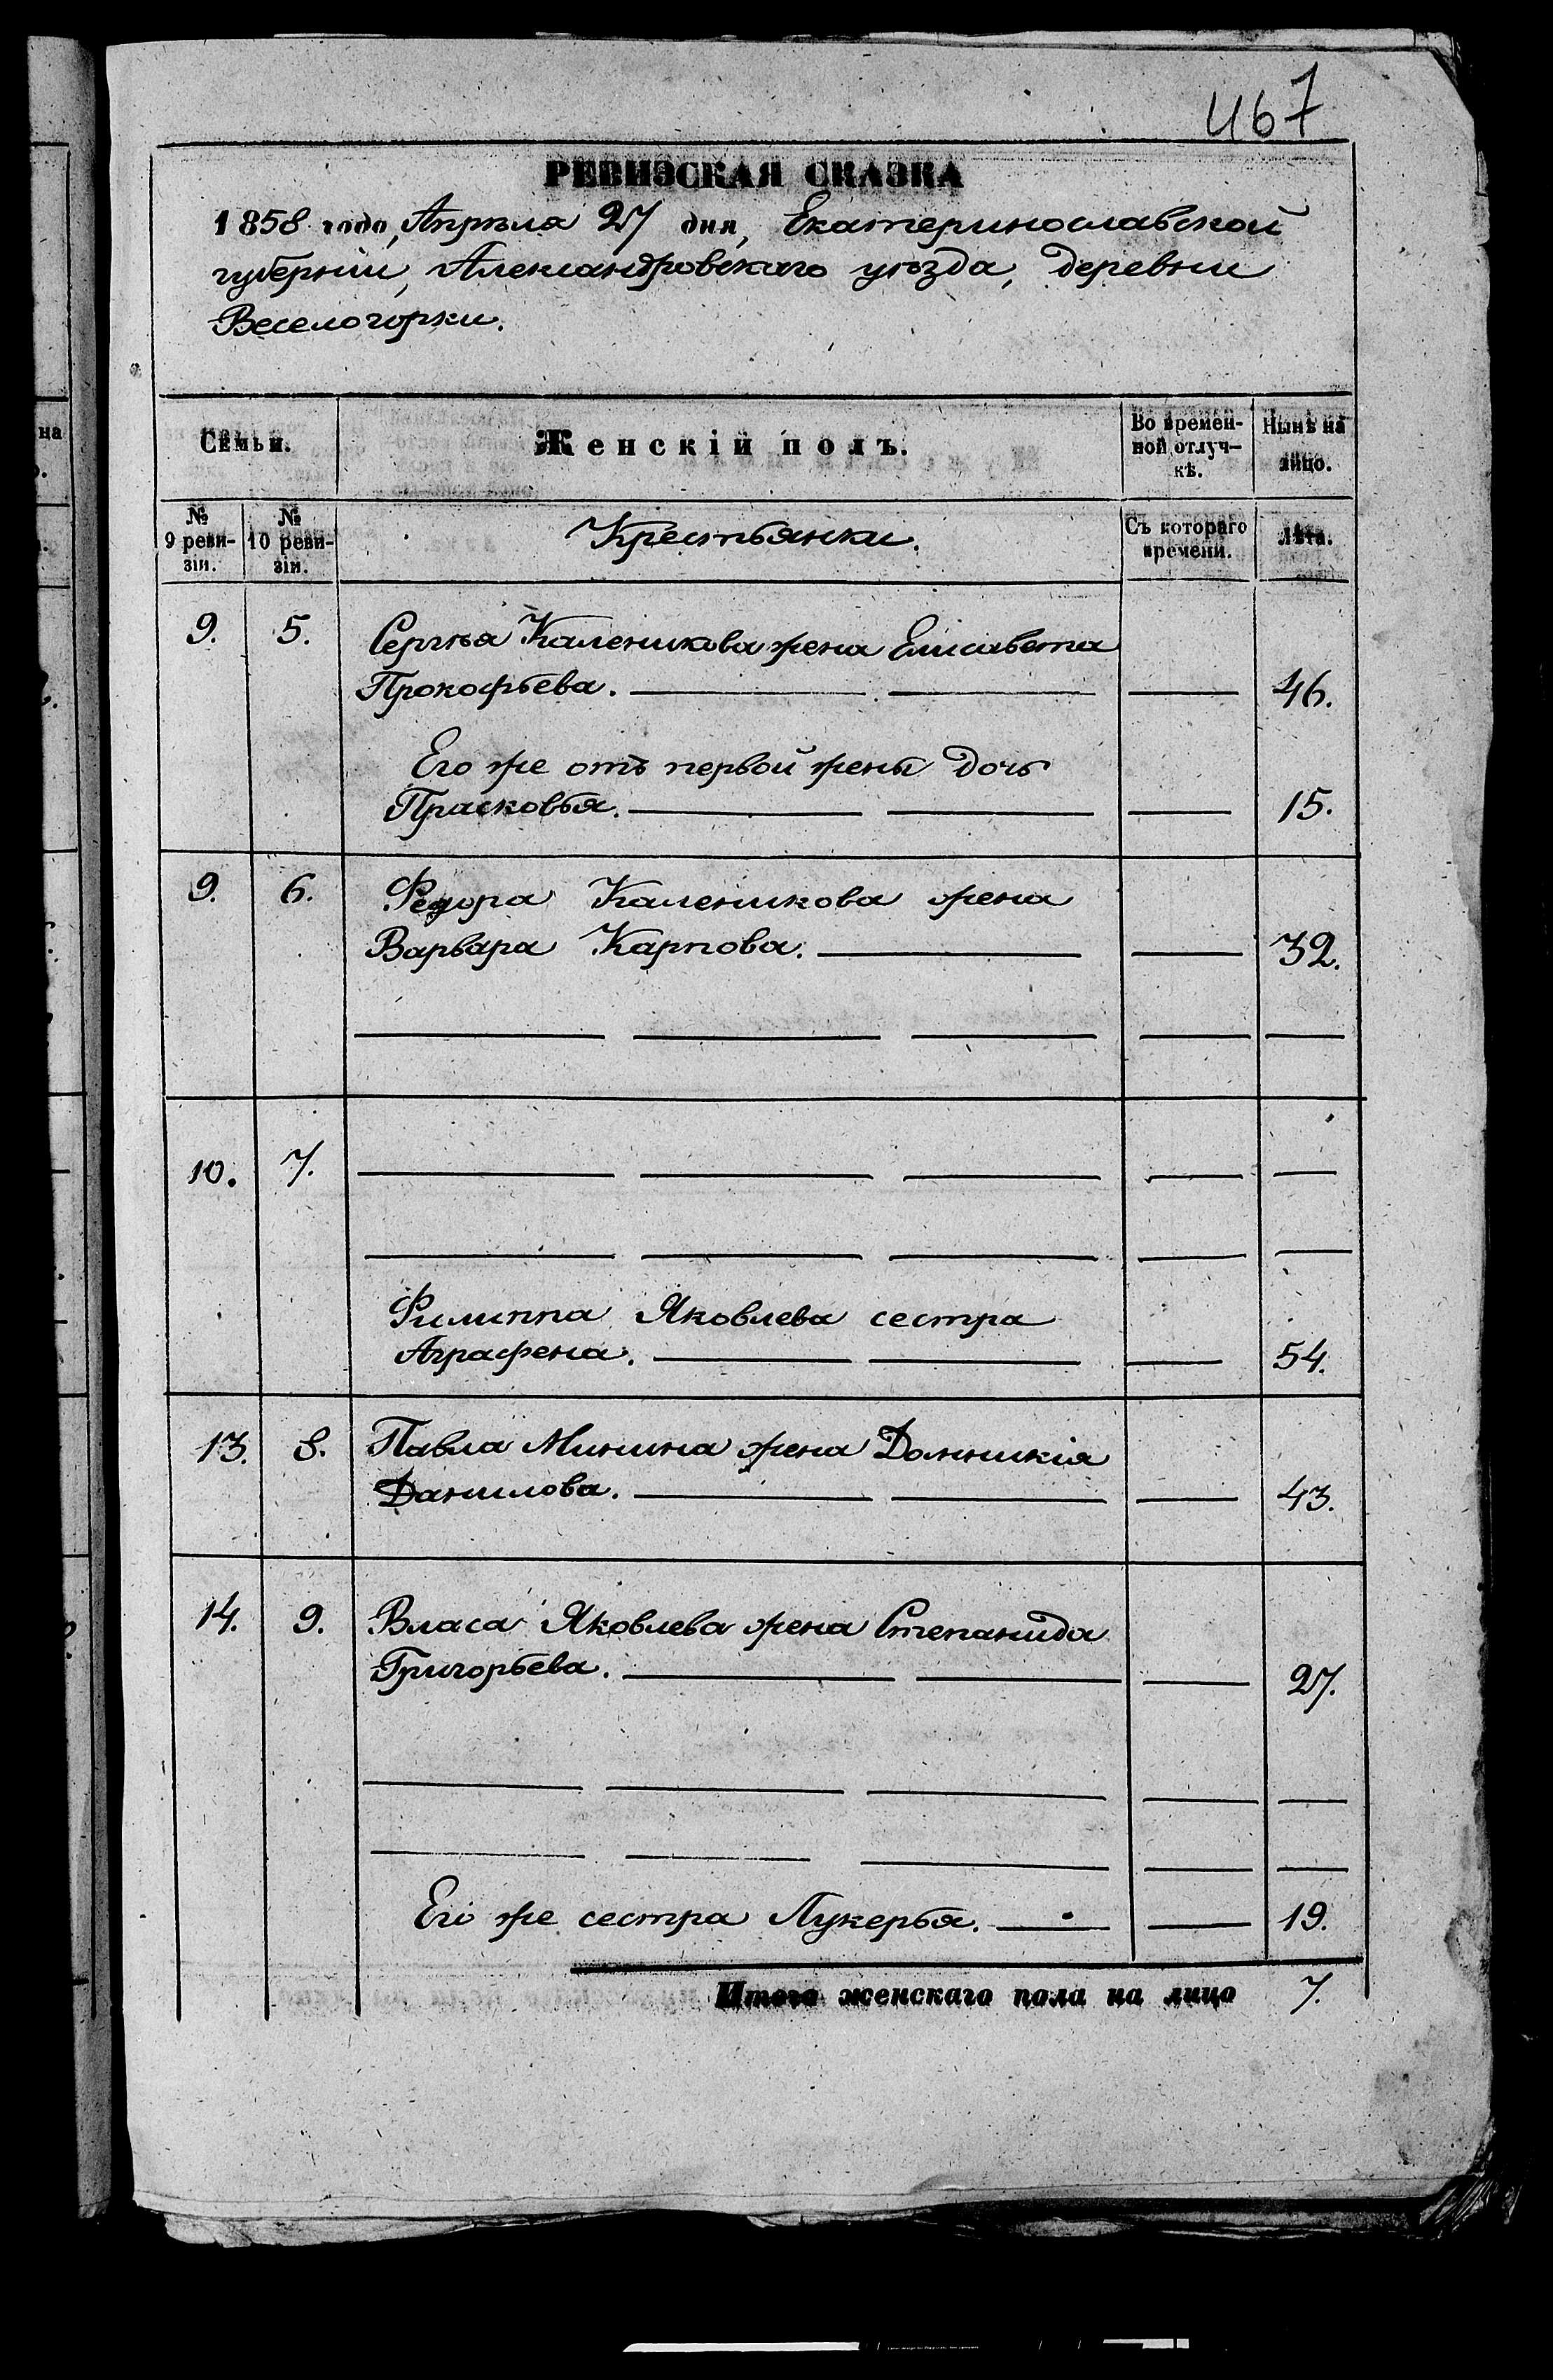 467
РЕВИЗСКАЯ СКАЗКА
1858 года, Апрѣля 27 дня, Екатеринославской
губерніи, Александровскаго уѣзда, деревни
Веселогорки.
Семьи. Женскій полъ. Во времен-ной отлуч-кѣ. Нынѣ на лицо.
№ 9 реви-зіи. № 10 реви-зіи. Крестьянки. Съ котораго времени. Лѣта.
9. 5. Сергѣя Каленикова жена Елисавета
Прокофьева. 46.
Его же отъ первой жены дочь
Прасковья. 15.
9. 6. Федора Каленикова жена
Варвара Карпова. 32.
10. 7.
Филиппа Яковлева сестра
Аграфена. 54.
13. 8. Павла Минина жена Домникія
Данилова. 43.
14. 9. Власа Яковлева жена Степанида
Григорьева. 27.
Его же сестра Лукерья. 19.
Итого женскаго пола на лицо 7.
на